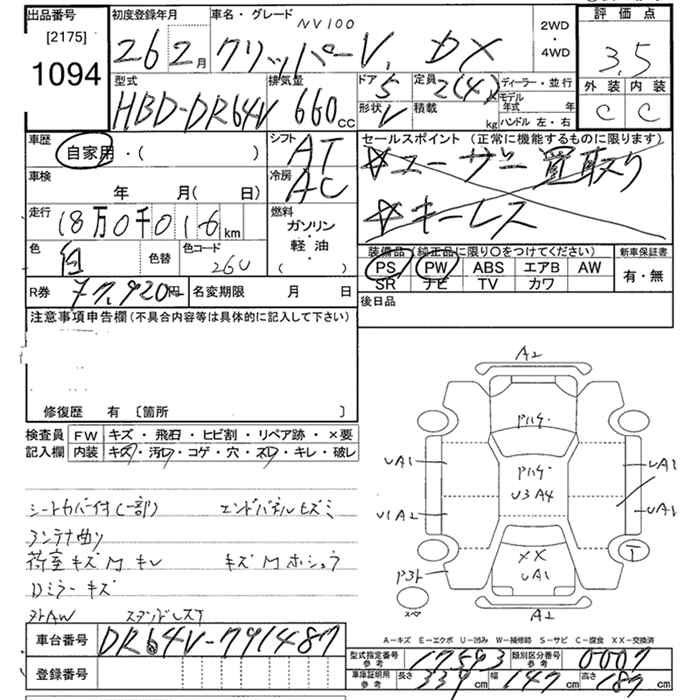 出品番号
[2175]
1094
初度登録年月
26 2月
車名・グレード
NV100
クリッパーV. DX
2WD
・
4WD
評価点
3.5
外装 内装
C C
型式
HBD-DR64V
排気量
660cc
ドア
5
定員
2(4)人
ディーラー・並行
モデル年式 年
形状
V
積載 kg
ハンドル 左・右
車歴
自家用・( )
シフト
AT
車検
年 月( 日)
冷房
AC
走行
18万0千016km
燃料
ガソリン
・
軽油
( )
色
白
色替
色コード
26U
セールスポイント (正常に機能するものに限ります)
☆ユーザー買取り
☆キーレス
装備品(純正品に限り○をつけてください)
PS PW ABS エアB AW
SR ナビ TV カワ
新車保証書
有・無
R券
77,920円
名変期限 月 日
後日品
注意事項申告欄(不具合内容等は具体的に記入して下さい)
修復歴 有 〔箇所 〕
検査員記入欄
FW キズ・飛石・ヒビ割・リペア跡・×要
内装 キズ・汚レ・コゲ・穴・スレ・キレ・破レ
シートカバー付(一部) エンドパネルヒズミ
アンテナ曲り
荷室キズMキレ キズMホシュウ
Dミラーキズ
外AW スタッドレス
A2
Pハゲ.
UA1 Pハゲ. UA1
U3A4
U1A2 UA1
XX
UA1
T
スペア
A2
A-キズ E-エクボ U-凹み W-補修跡 S-サビ C-腐食 XX-交換済
車台番号
DR64V-791487
登録番号
型式指定番号 参考
17593
類別区分番号 参考
0007
車庫証明用 参考
長さ 339cm 幅 147cm 高さ 187cm